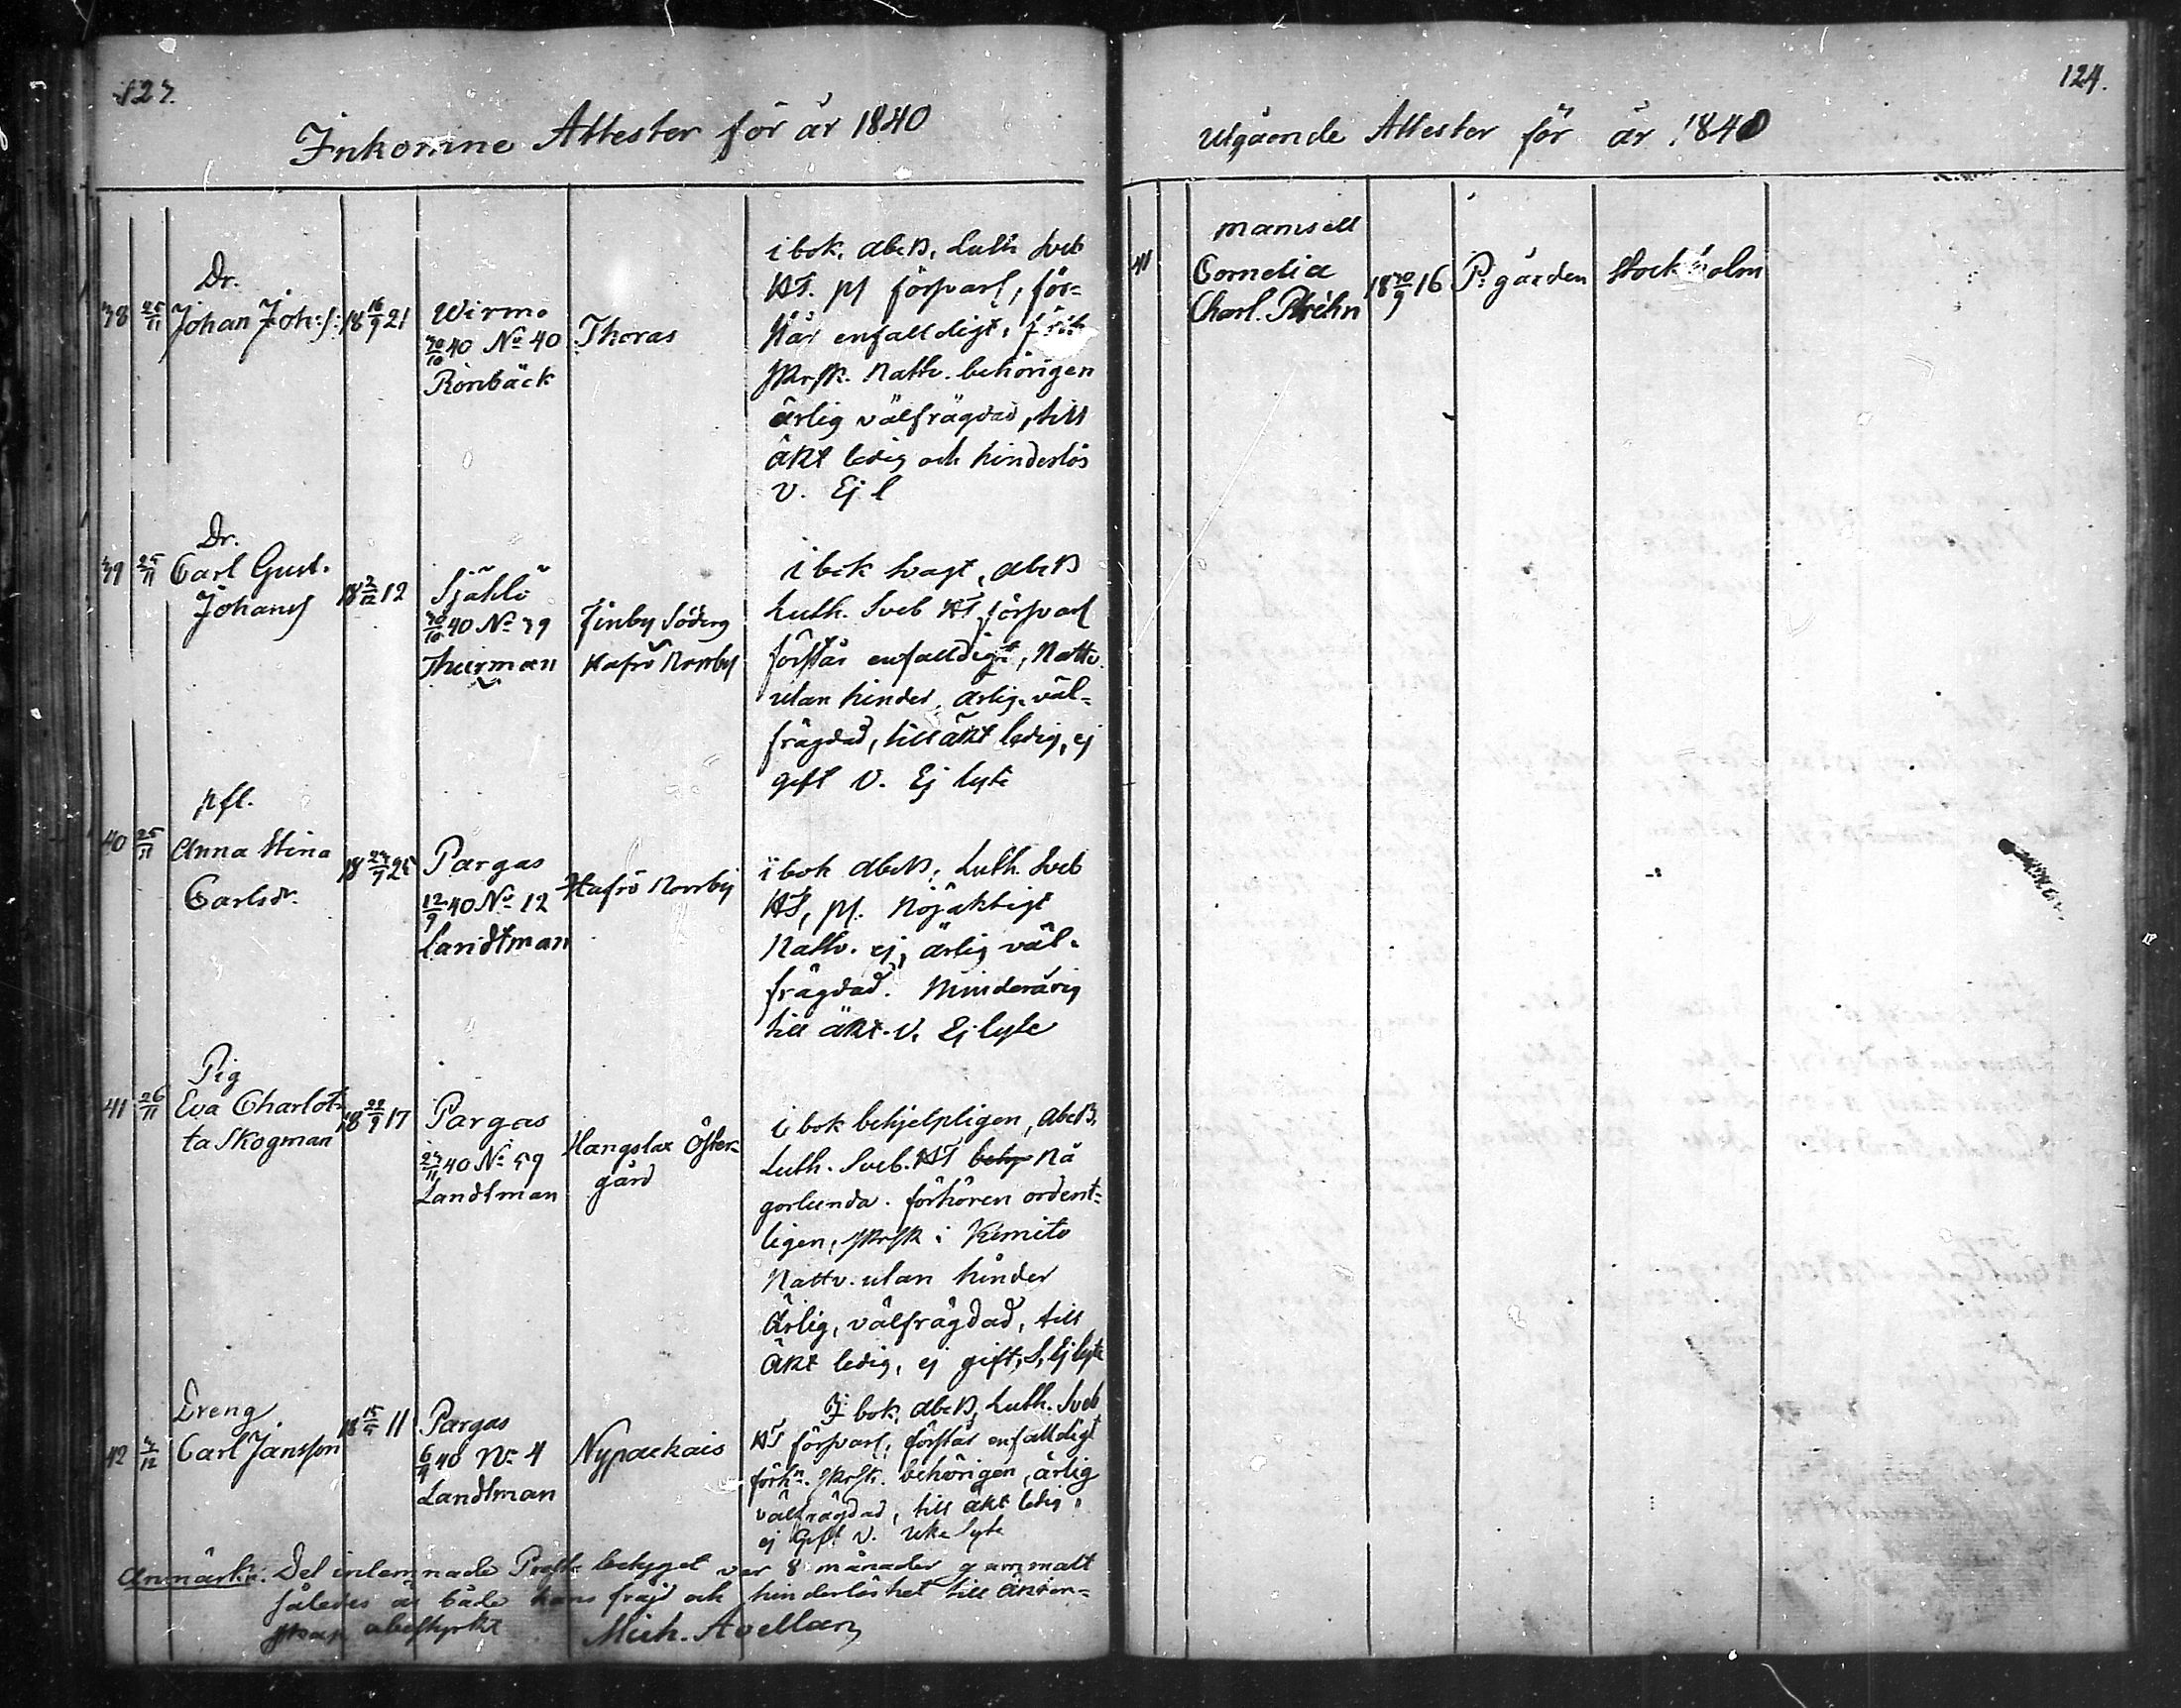 123.
Inkomne Attester för år 1840
38 25/11 Dr.
Johan Joh:s: 18 16/9 21
Wirmo
30/10 40 No 40
Rönbäck
Thoras
i bok, abeB, Luth Sveb
HT. ps försvarl, för-
står enfalldigt,
skrsk. Nattv. behörigen
ärlig välfrägdad, till
äkt ledig och hinderlös
V. Ej l
39 25/11 Dr.
Carl Gust.
Johans 18 2/12 12
Själö
30/10 40 No 39
Thurman
Finby Söderg
Hafrö Norrby
i bok svagt, abeB
Luth. Sveb HT försvarl
förstår enfalldigt, Nattv.
utan hinder, ärlig, väl-
frägdad, till äkt ledig, ej
gift V. Ej lyte
40 25/11 pfl.
Anna Stina
Carlsdr.
Pargas
12/9 40 No 12
Landtman
Hafrö Norrby
i bok abeB, Luth. Sveb
HT, ps. Nöjaktigt
Nattv. ej, ärlig väl-
frägdad. Minderårig
till äkt. V. Ej lyte
41 26/11 Pig
Eva Charlot-
ta Skogman 18 28/9 17
Pargas
23/11 40 No 59
Landtman
Hangslax Öster-
gård
i bok behjelpligen, abeB,
Luth. Sveb. HT behj Nå
gorlunda. förhören ordent-
ligen, skrsk i Kimito
Nattv. utan hinder
Ärlig, välfrägdad, till
Äkt ledig, ej gift, S, Ej lyte
42 3/12 Dreng
Carl Jansson 18 15/5 11
Pargas
6/4 40 No 4
Landtman
Nypaekais
I bok, abeB, Luth. Sveb
HT försvarl, förstår enfalldigt
förhn. skrsk. behörigen, ärlig
välfrägdad, till äkt ledig,
ej Gift V. utan lyte
Anmärkn. Det inlemnade Prest betyget var 8 månader gammalt
således är både hans fräjd och hinderlöshet till äkten-
skap obestyrkt Mich. Avellan
124.
Utgående Attester för år 1840
41
Mamsell
Cornelia
Charl. 18 30/9 16 P. gården Stockholm